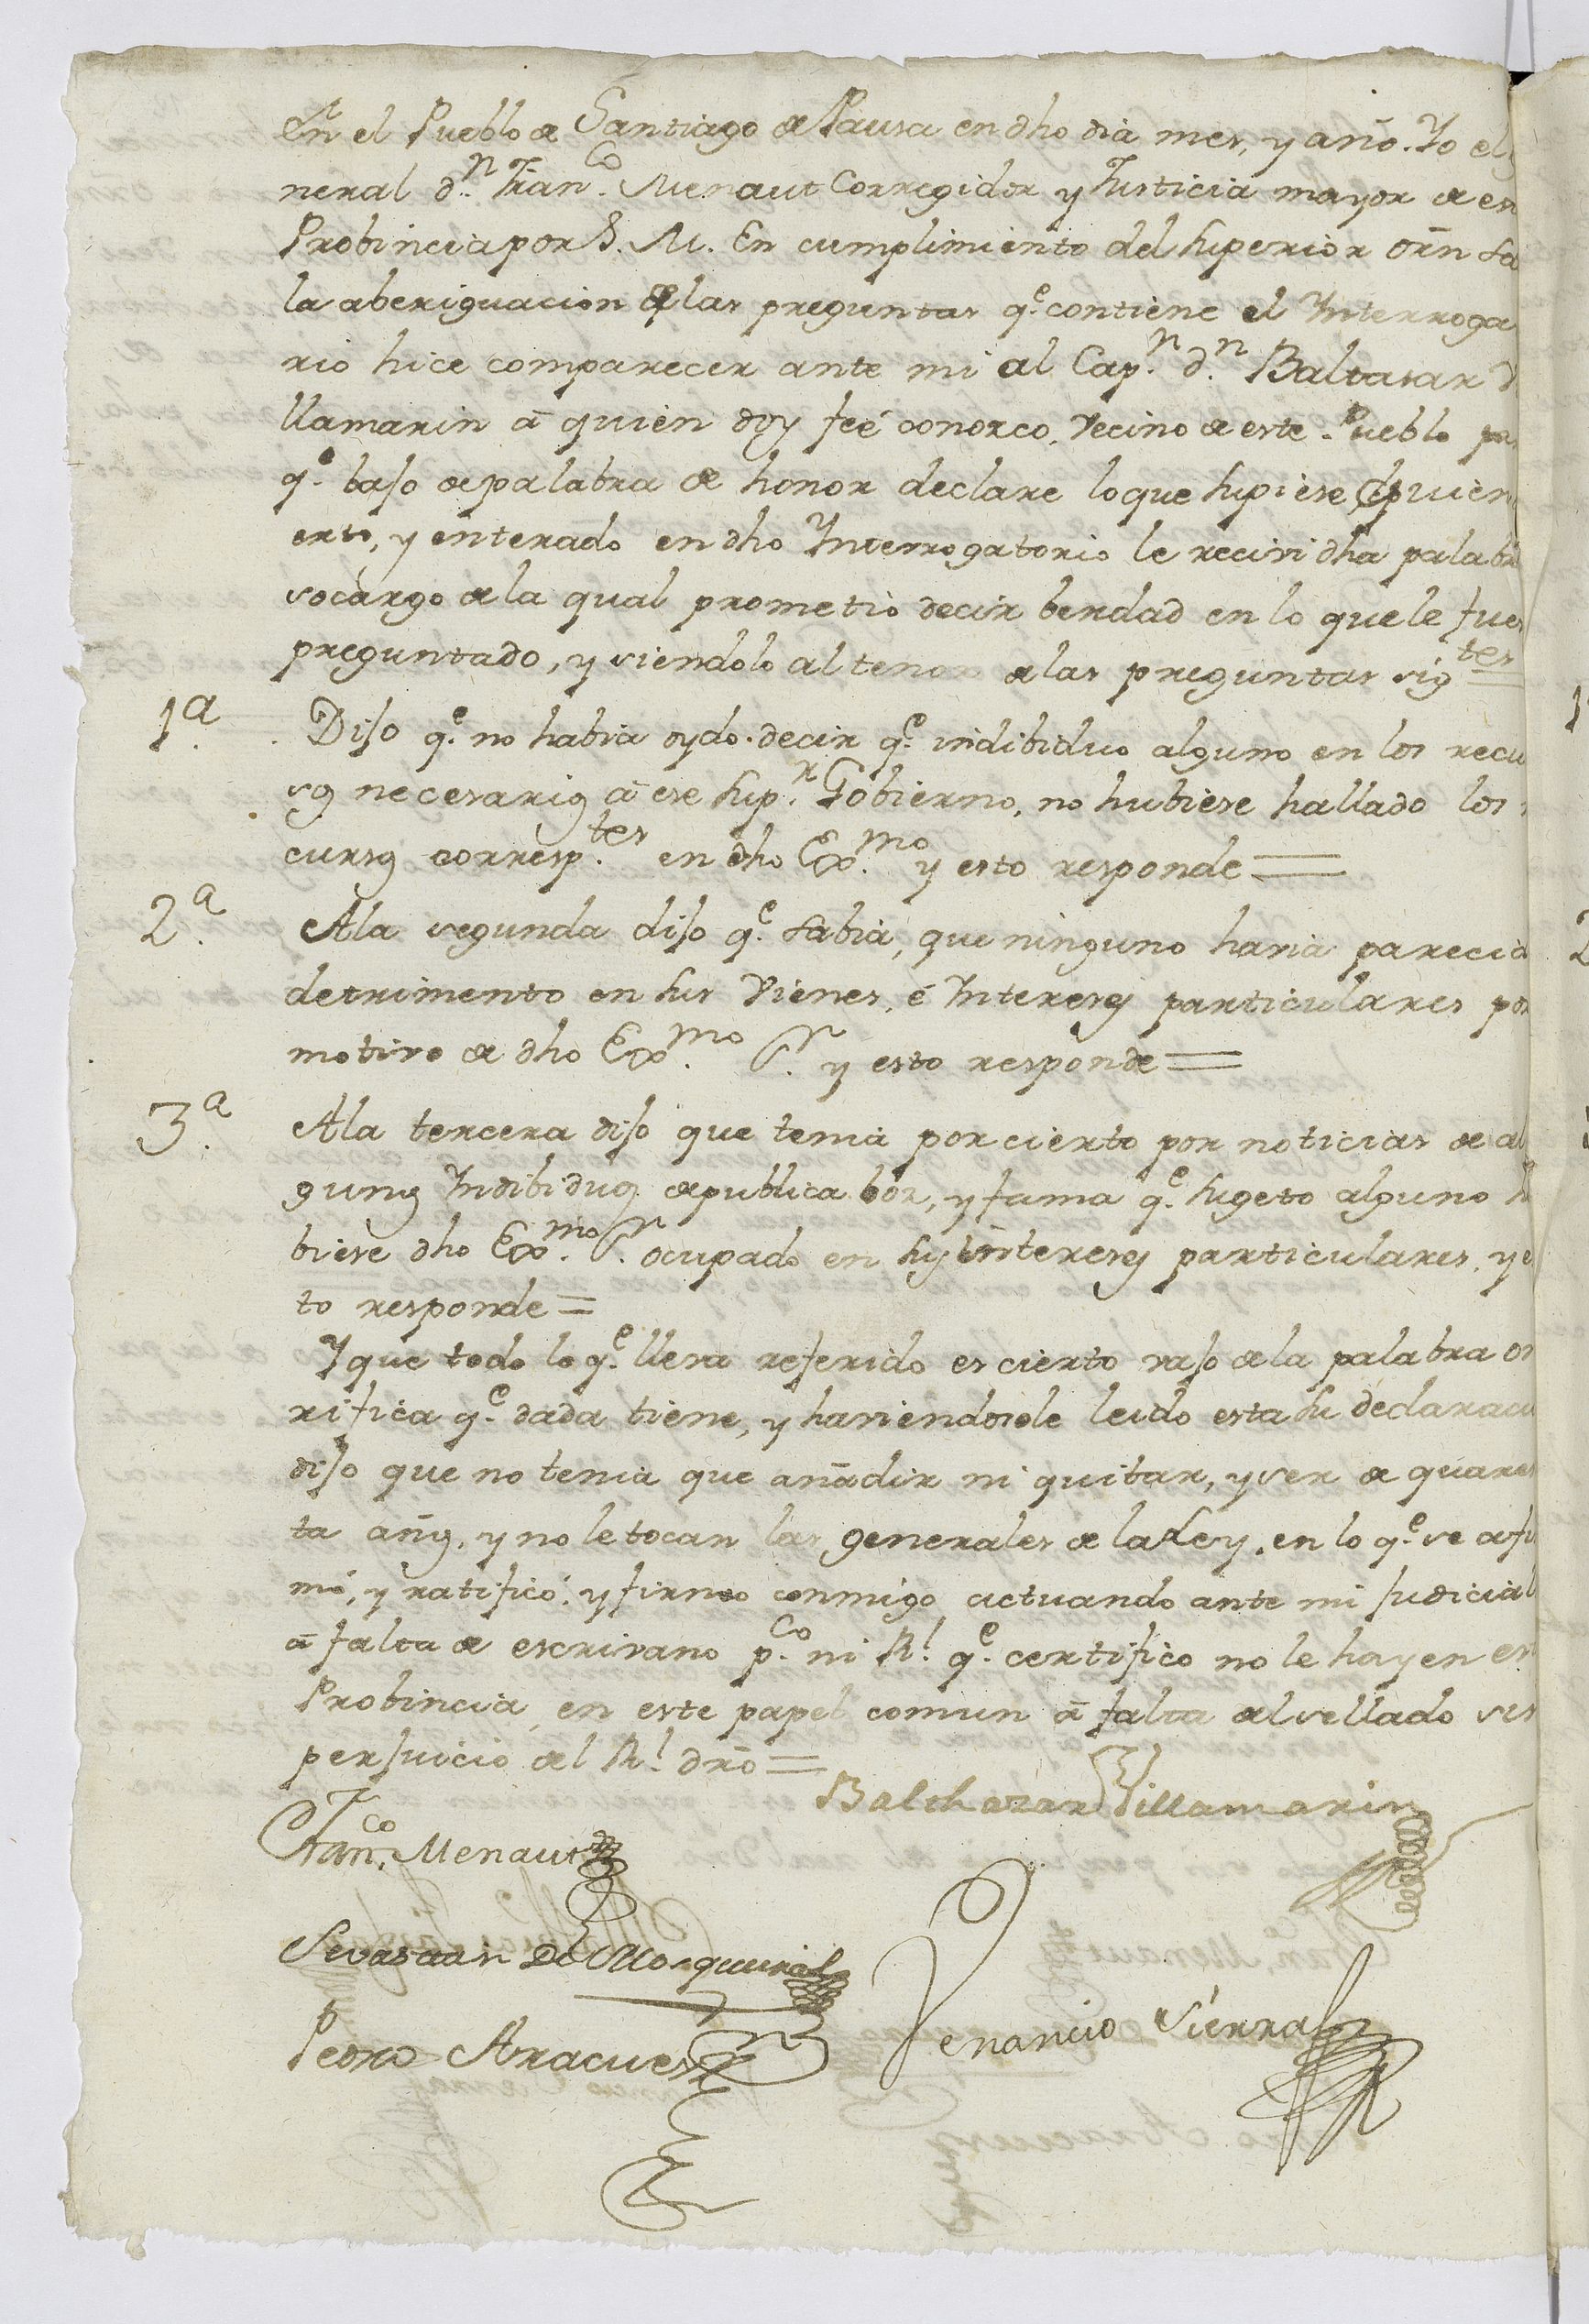 En el Pueblo de Santiago de Pausa en dho dia mes, y año. Yo el
neral dn. Franco. Menaut Corregidor y Justicia mayor de es
Probincia por S. M. En cumplimiento del superior orn sa
la aberiguacion de las preguntas qe. contiene el Interroga
rio hice comparecer ante mi al Capn. dn. Baltasar
llamarin â quien doy feé conosco, Vecino de este Pueblo pa
qe. bajo de palabra de honor declare lo que supiere
erto, y enterado en dho Interrogatorio le recivi dha palabr
socargo de la qual prometiò decir berdad en lo que le fue
preguntado, y siendolo al tenor de las preguntas sigtes
1a. Dijo qe. no habia oydo decir qe. indibiduo alguno en los recu
sos necesarios â ese supr. Gobierno, no hubiese hallado los
cursos corresptes. en dho Exmo. y esto responde =
2a. A la segunda dijo qe. sabia, que ninguno haria parecid
detrimento en sus Vienes, é Intereses particulares por
motivo de dho Exmo. Sr. y esto responde =
3a. A la tercera dijo que tenia por cierto por noticias de al
gunos Indibiduos de publica bos, y fama qe. sugeto alguno h
biese dho Exmo. Sr. ocupado en sus Intereses particulares, y e
to responde =
Y que todo lo qe. lleva referido es cierto vajo de la palabra o
rifica qe. dada tiene, y haviendosele leido esta su declarac
dijo que no tenia que añadir ni quitar, y ser de quaren
ta años, y no le tocan las generales de la Ley, en lo qe. se afi
mó, y ratificó, y firmo conmigo actuando ante mi judicial
â falta de escrivano pco. ni Rl. qe. certifico no le hay en es
Probincia, en este papel comun â falta del sellado
perjuicio del Rl. dro =
Balthazar Villamarin
Franco. Menaut
Sevastian De Mosqueira
Venancio Sierra
Pedro Aracues
1
2